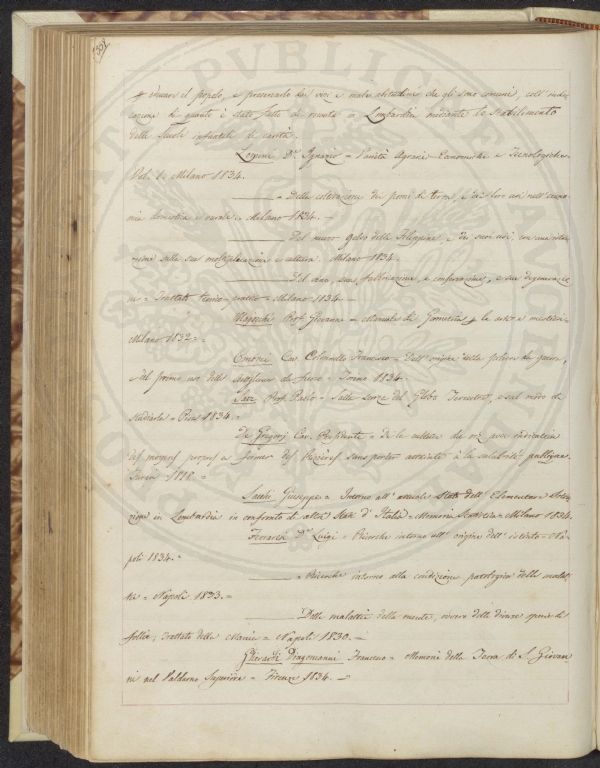 308
educare il popolo, e preservarlo dai vizi e male abitudini che gli sono comuni, coll' indi-
cazione di quanto è stato fatto di recente in Lombardia mediante lo stabilimento
delle Scuole infantili di carità.
Lomeni Dr. Ignazio = Varietà Agrarie Economiche e Tecnologiche.
Vol. 1. Milano 1834.
= Della coltivazione dei pomi di terra, e dei loro usi nell' econo-
mia domestica e rurale. Milano 1834. =
= Del nuovo Gelso delle Filippine, e dei suoi usi, con una istru-
zione sulla sua moltiplicazione e coltura. Milano 1834.
= Del vino, sua fabbricazione, e conservazione, e sua degenerazio
ne = Trattato teorico-pratico = Milano 1834. =
Majocchi Prof. Giovanni = Manuale di Geometria per le arti e mestieri =
Milano 1832. =
Omodei Cav. Colonnello Francesco = Dell' origine della polvere da guerra,
e del primo uso delle artiglierie da fuoco = Torino 1834.
Savi Prof. Paolo = Sulla scorza del Globo Terrestre, e sul modo di
studiarla = Pisa 1834. =
De Gregorj Cav. Presidente = De la culture du riz avec indication
des moyens propres à former des Rizières sans porter atteinte à la salubrité publique.
Turin 1818. =
Sacchi Giuseppe = Intorno all' attuale Stato dell' Elementare Istru-
zione in Lombardia in confronto di altri Stati d' Italia = Memoria Statistica = Milano 1834.
Ferrarese Dr. Luigi = Ricerche intorno all' origine dell' istinto = Na-
poli 1834. =
= Ricerche intorno alla condizione patologica delle malat-
tie = Napoli 1833. =
Delle malattie della mente, ovvero delle diverse specie di
follie; trattato della Mania = Napoli 1830. =
Gherardi Dragomanni Francesco = Memorie della Terra di S. Giovan
ni nel Valdarno Superiore = Firenze 1834. =